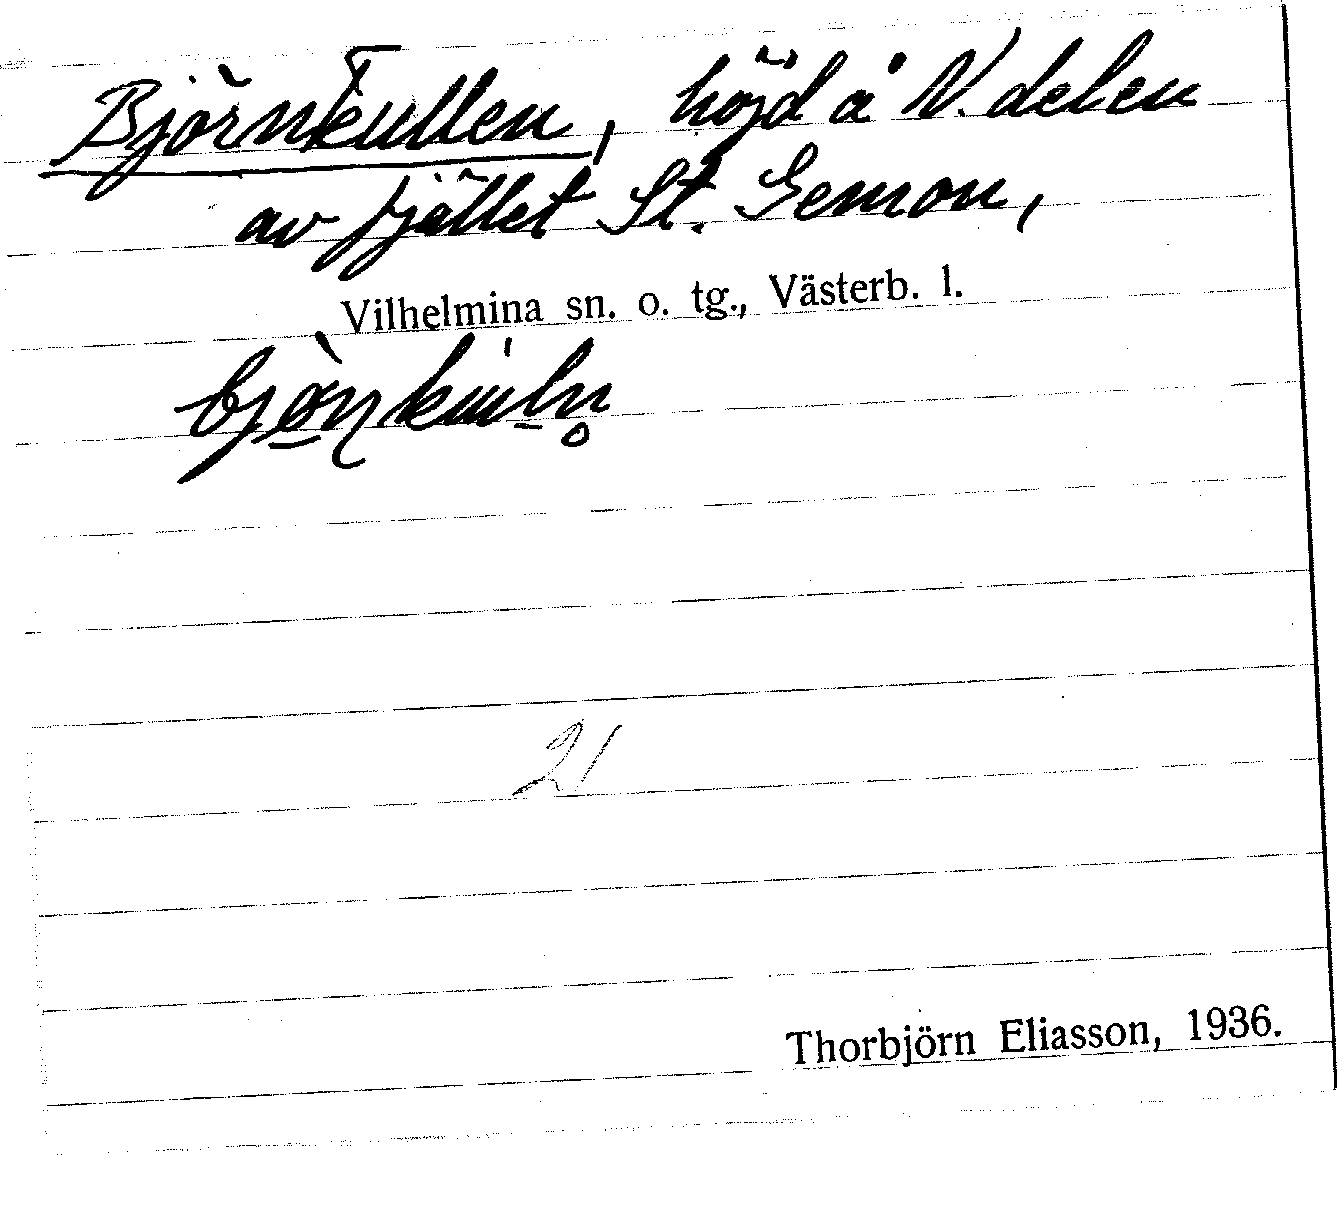 Björnkullen, höjd å N. delen
av fjället St. Gemon,
Vilhelmina sn. o. tg., Västerb. l.
21
Thorbjörn Eliasson, 1936.